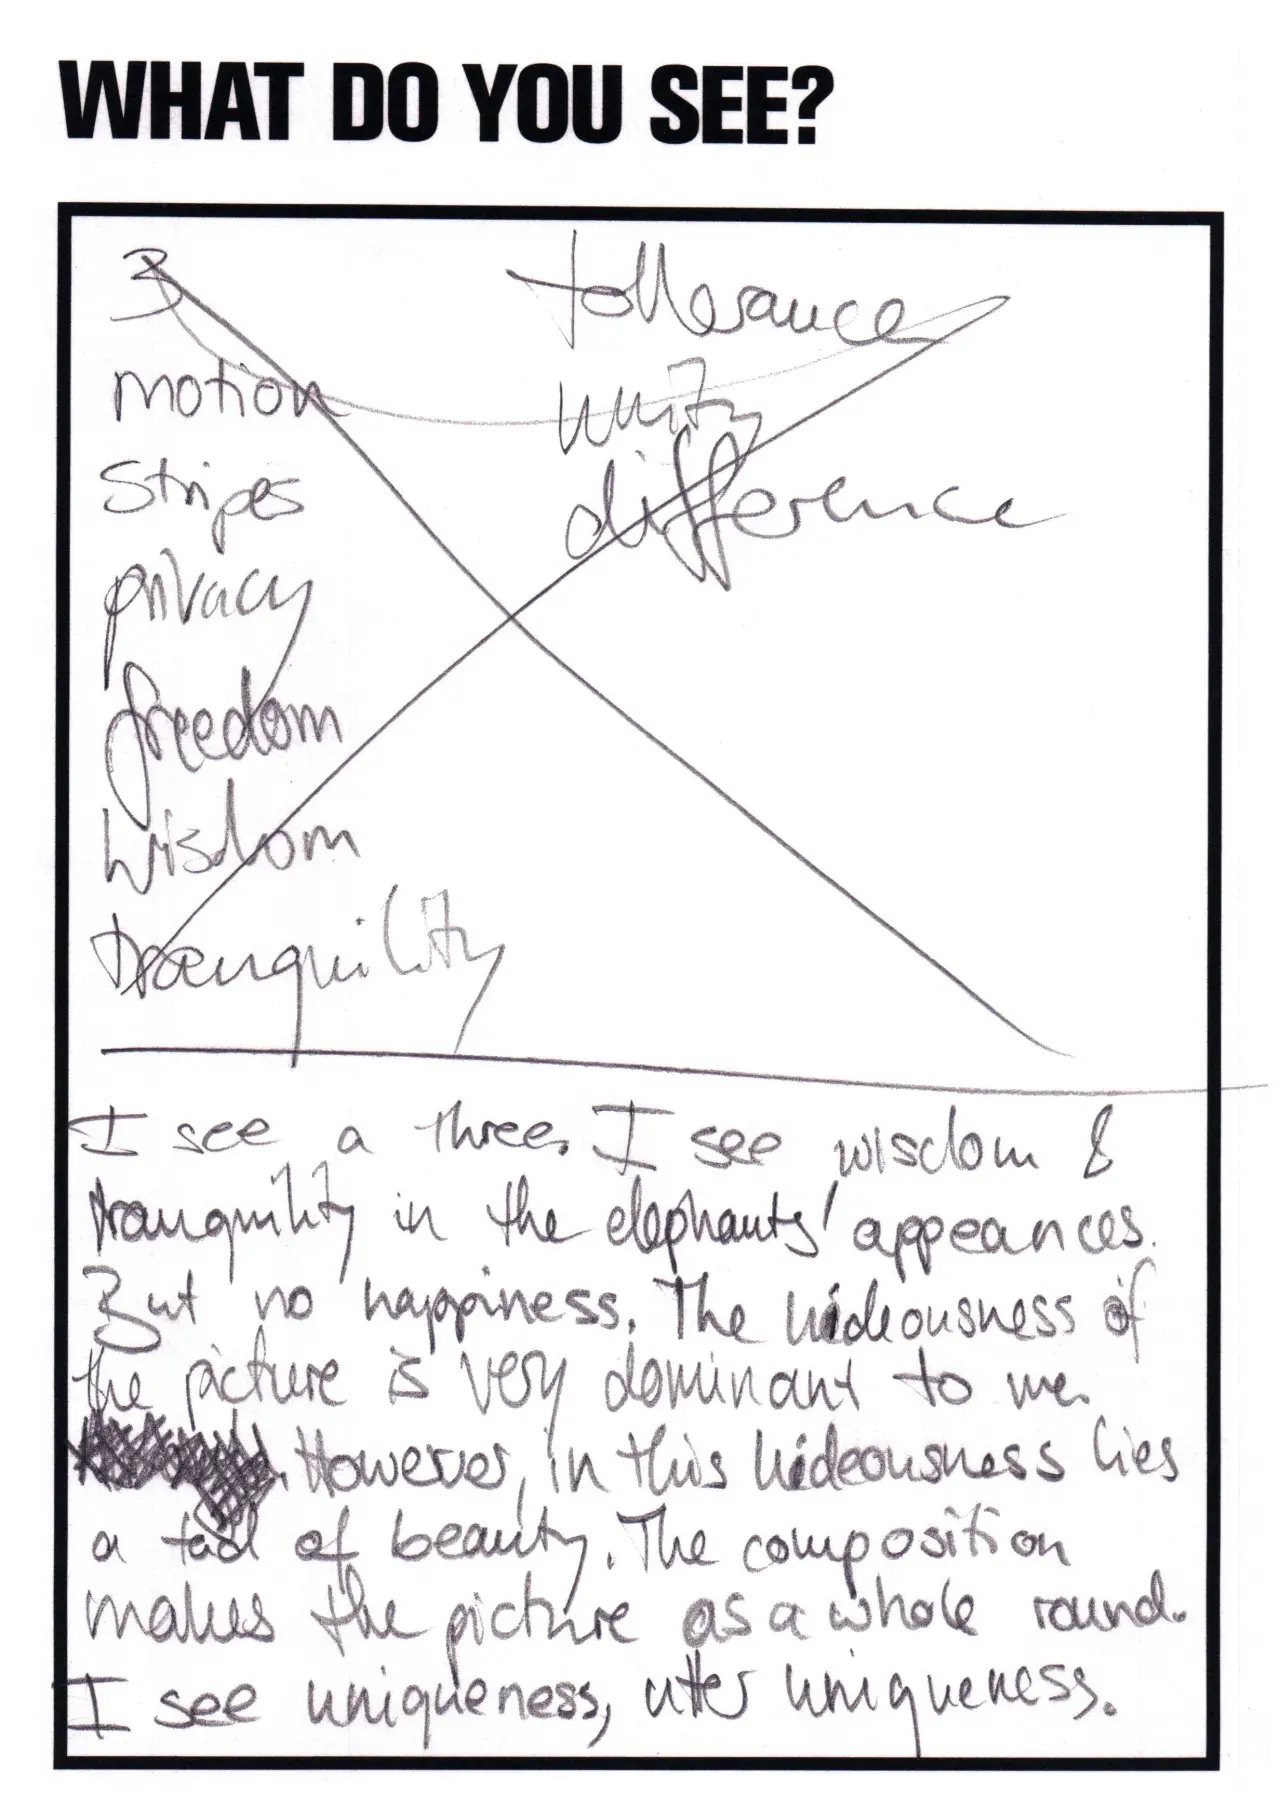 WHAT DO YOU SEE?
3
motion
Stripes
privacy
freedom
wisdom
tranquility
tollerance
unity
difference
I see a three. I see wisdom &
tranquility in the elephants' appeances.
But no happiness. The hideousness of
the picture is very dominant to me.
. However, in this hideousness lies
a tad of beauty. The composition
makes the picture as a whole round.
I see uniqueness, utter uniqueness.